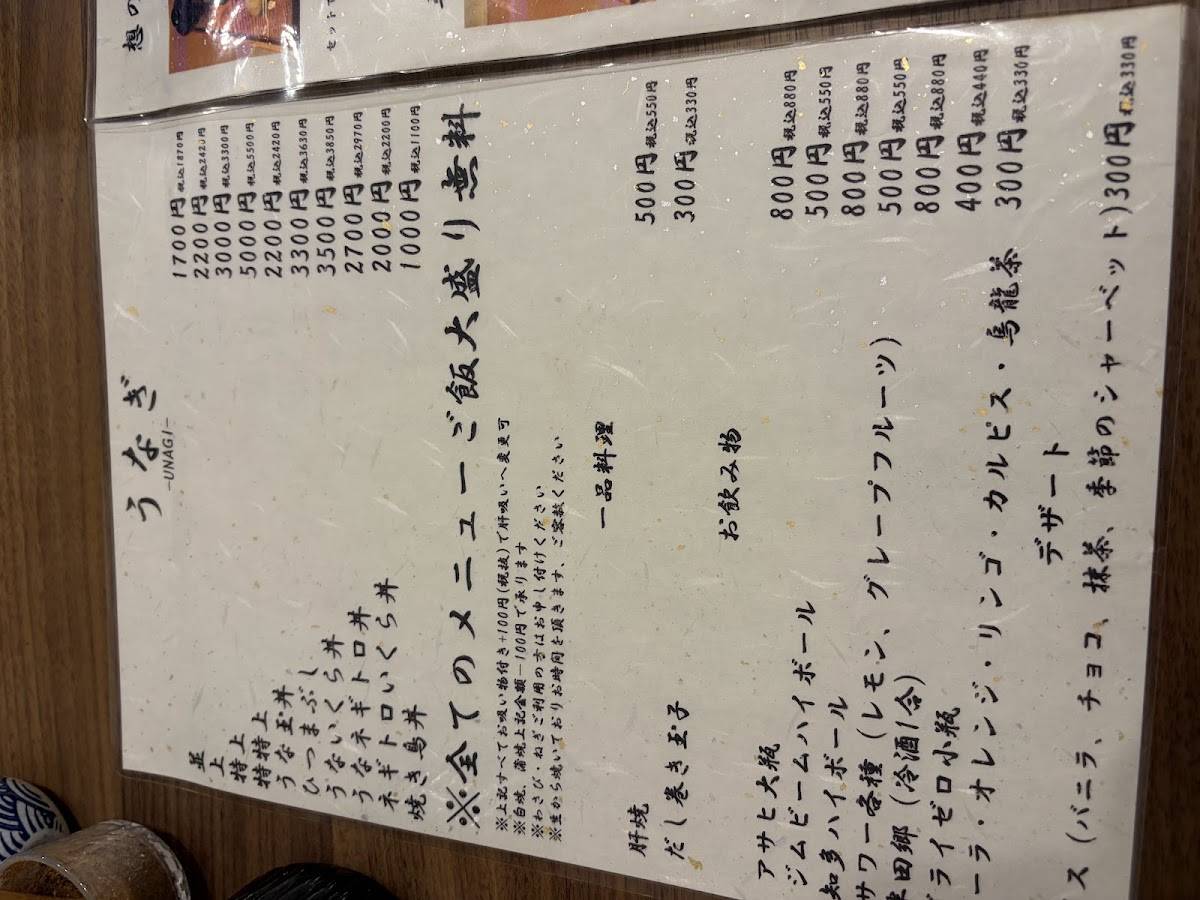 想の
セットで
うなぎ
-UNAGI-
並 1700円 税込1870円
上 2200円 税込2420円
特上 3000円 税込3300円
特特上 5000円 税込5500円
うな玉丼 2200円 税込2420円
ひつまぶし 3300円 税込3630円
うないくら丼 3500円 税込3850円
うなネギトロ丼 2700円 税込2970円
ネギトロいくら丼 2000円 税込2200円
焼き鳥丼 1000円 税込1100円
※全てのメニューご飯大盛り無料
※上記すべてお吸い物付き+100円(税抜)で肝吸いへ変更可
※白焼、蒲焼上記金額-100円で承ります
※わさび、ねぎご利用の方はお申し付けください
※生から焼いておりお時間を頂きます、ご容赦ください
一品料理
肝焼 500円 税込550円
だし巻き玉子 300円 税込330円
お飲み物
アサヒ大瓶 800円 税込880円
ジムビームハイボール 500円 税込550円
知多ハイボール 800円 税込880円
サワー各種(レモン、グレープフルーツ) 500円 税込550円
田郷(冷酒1合) 800円 税込880円
ライゼロ小瓶 400円 税込440円
ーラ・オレンジ・リンゴ・カルピス・烏龍茶 300円 税込330円
デザート
ス(バニラ、チョコ、抹茶、季節のシャーベット)300円 税込330円